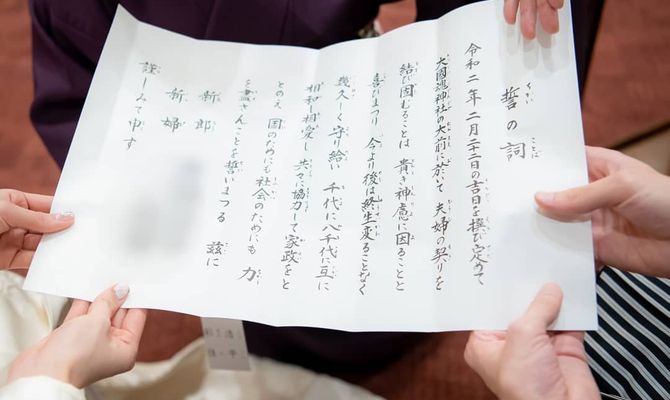 誓の詞
令和二年二月二十二日の吉日を撰び定めて
大國魂神社の大前に於いて 夫婦の契りを
結び固むることは 貴き神慮に因ることと
喜びまつり 今より後は終生変ることなく
幾久しく守り給い 千代に八千代に互に
相和し相愛し 共々に協力して家政をと
とのえ 国のためにも社会のためにも 力
を盡さんことを誓いまつる 茲に
新郎
新婦
謹しみて申す